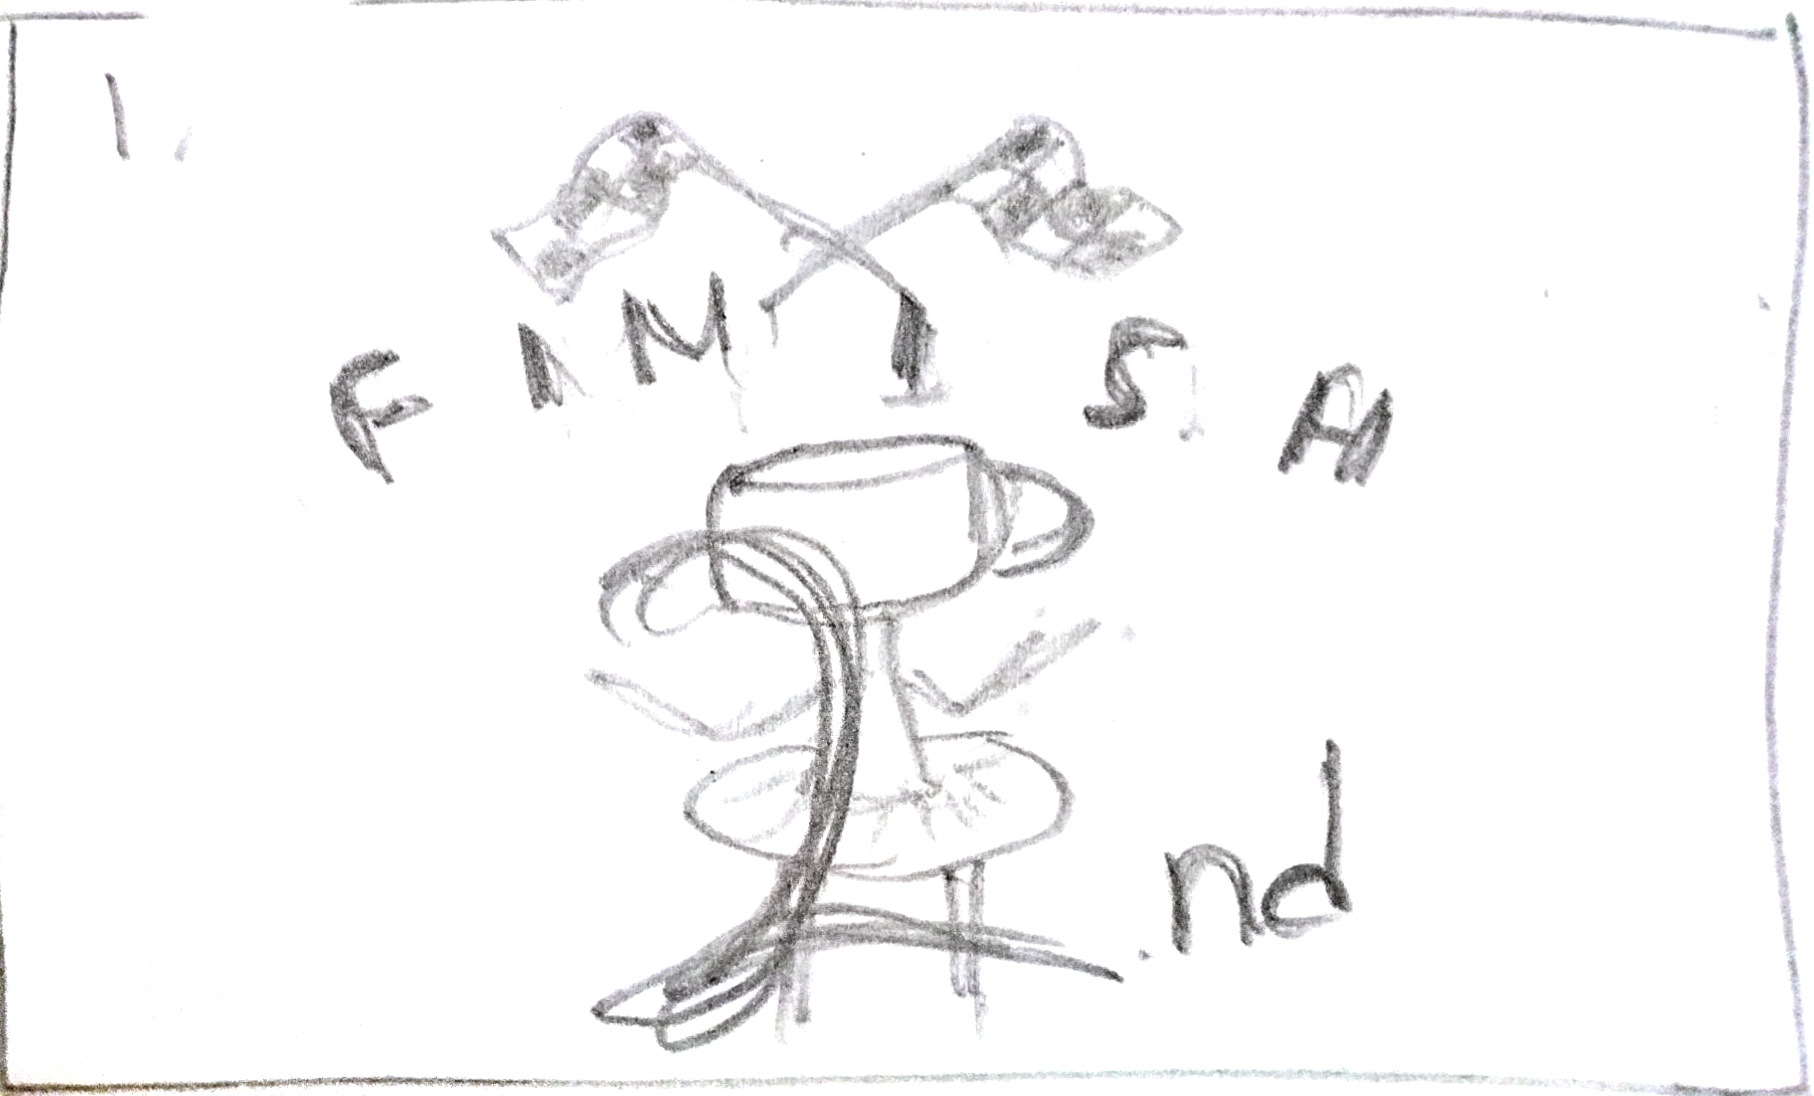 1.
FAMISA
2nd